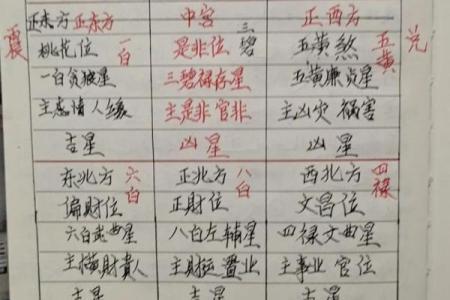 震 正东方 正东方 中宫 正西方 兑
桃花位 一白 是非位 三碧 五黄煞 五黄
一白贪狼星 三碧禄存星 五黄廉贞星
主感情人缘 主是非官非 主凶灾祸害
吉星 凶星 凶星
东北方 六白 正北方 八白 西北方 四禄
偏财位 正财位 文昌位
六白武曲星 八白左辅星 四禄文曲星
主横财贵人 主财运置业 主事业官位
吉星 吉星 吉星